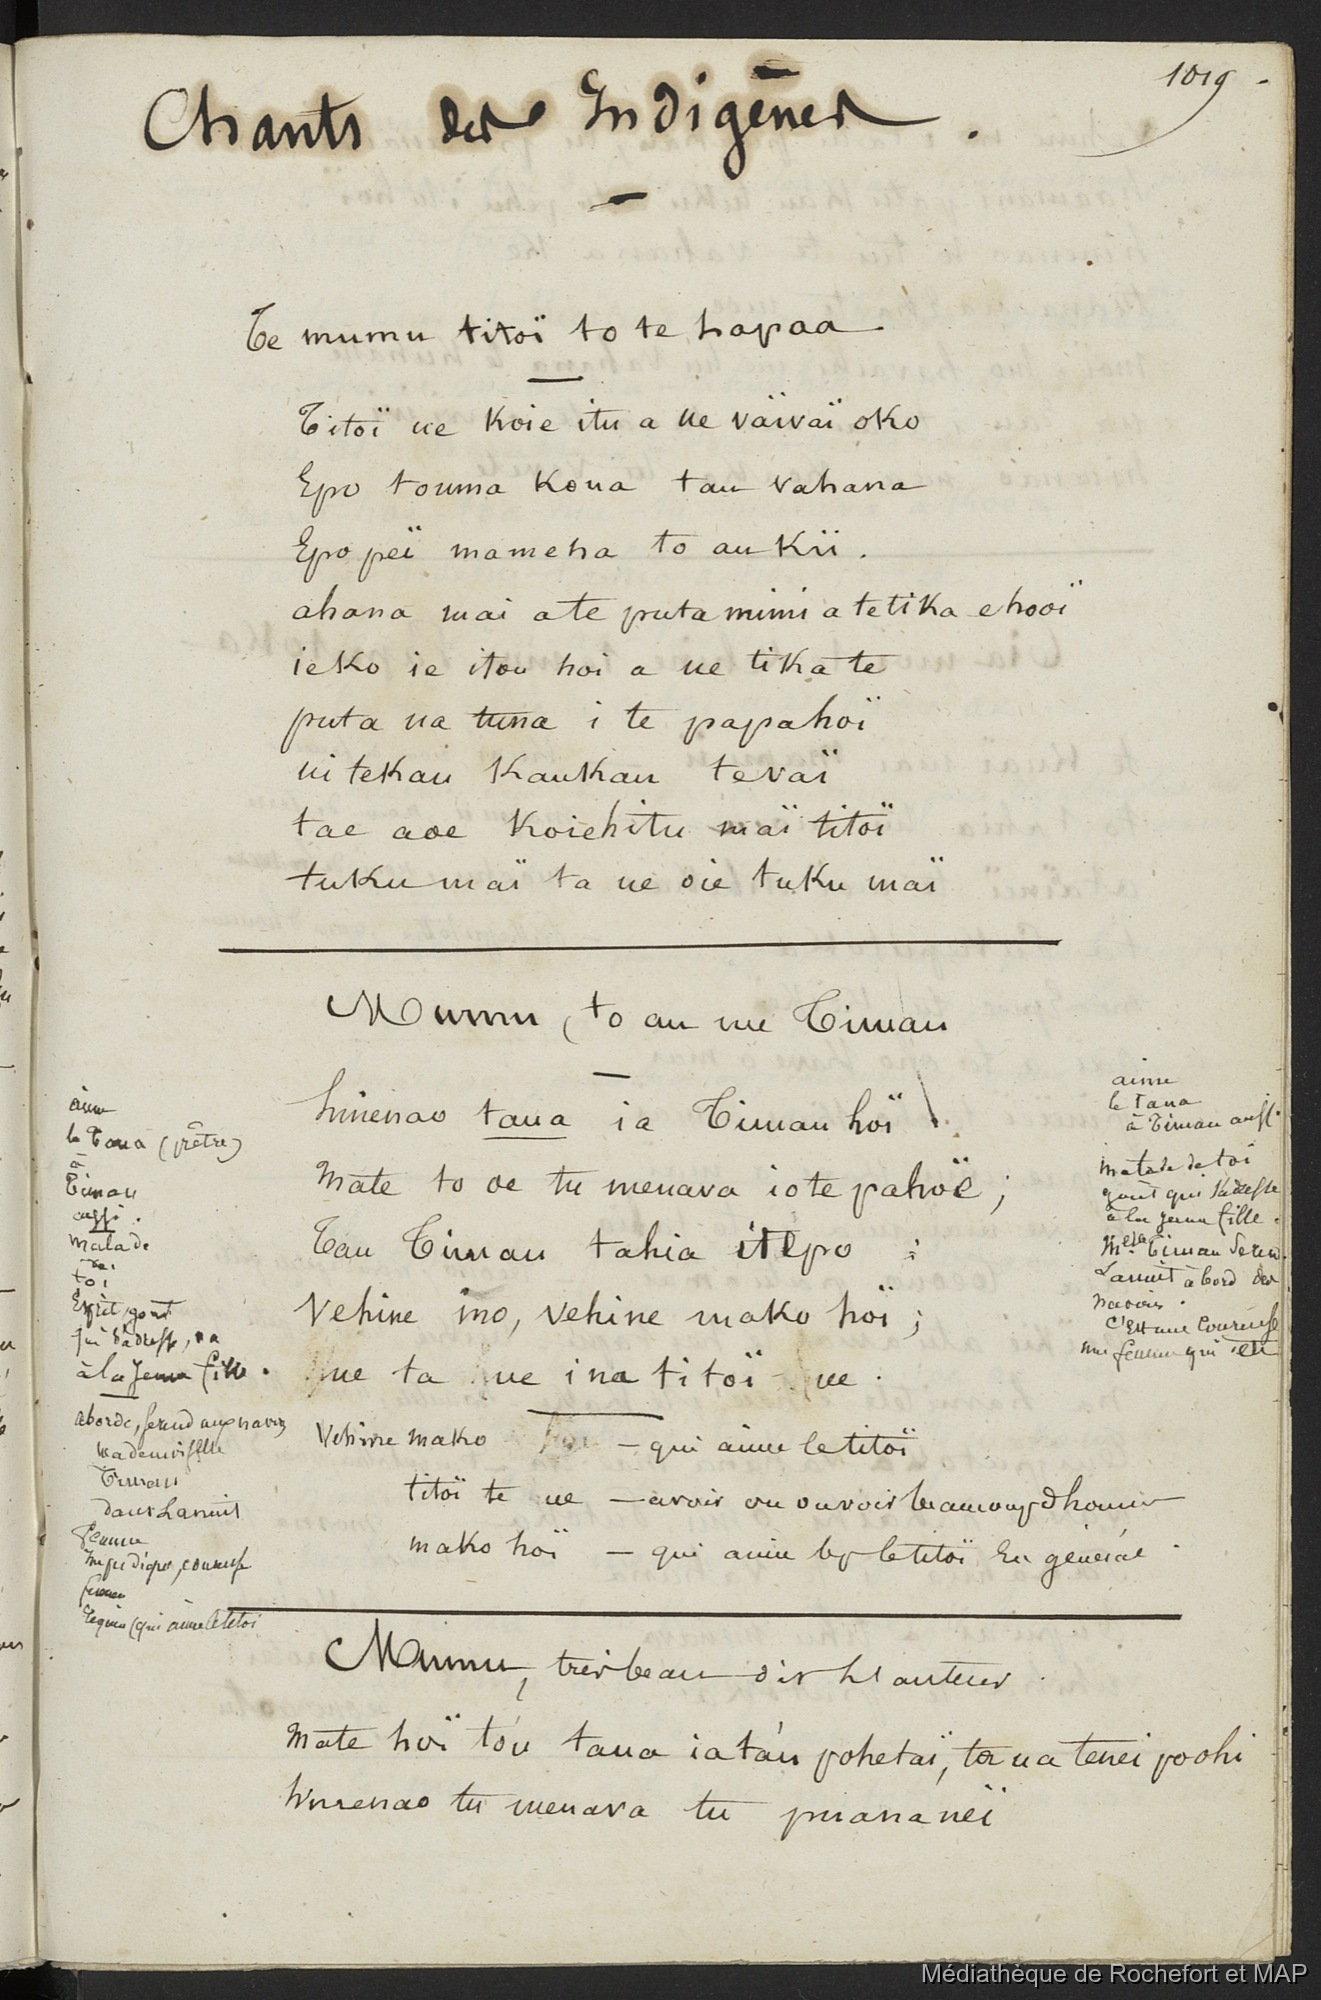 1019 -
Chants des Indigènes.
Te mumu titoï to te hapaa.
Titoï ue koie itu a ue väivaï oko
Epo touma koua tau vahana
Epo peï mameha to au kii.
ahana mai ate puta mimi a tetika ehooï
ieko ie itou hoi a ue tika te
puta ua tuna i te papahoï
ui tekau kaukau tevaï
tae aoe koiehitu maï titoï
tuku maï ta ue oie tuku maï
Mumu, to au me Timau
hinenao taua ia Timau hoï
Mate to oe tu menava iote pahoë;
Tau Timau tahia itepo;
Vehine ino, vehine mako hoï;
ue ta ue ina titoï ue.
Vehine mako hoï - qui aime le titoï
titoï te ue - avoir ou beaucoup d'homme
mako hoï - qui aime le titoï En général.
aime
le Taua (prêtre)
à
Timau
aussi.
Malade
toi
Esprit, gout
qui s'adresse,
à la Jeune fille.
aborde, se rend aux navires
Mademoiselle
Timau
dans La nuit
Femme
Impudique, coureuse
femme
Requin (qui aime le titoi
aime
le Taua
à Timau aussi.
Malade de toi
gout qui s'adresse
à la jeune fille.
Melle Timau se rend
La nuit à bord des
navires.
C'est une Coureuse
une femme qui
Mumu, très beau dit l'auteur.
Mate hoï tóu taua ia táu pohetaï, ta ua tenei poohi
hinenao tu menava tu puananeï
Médiathèque de Rochefort et MAP